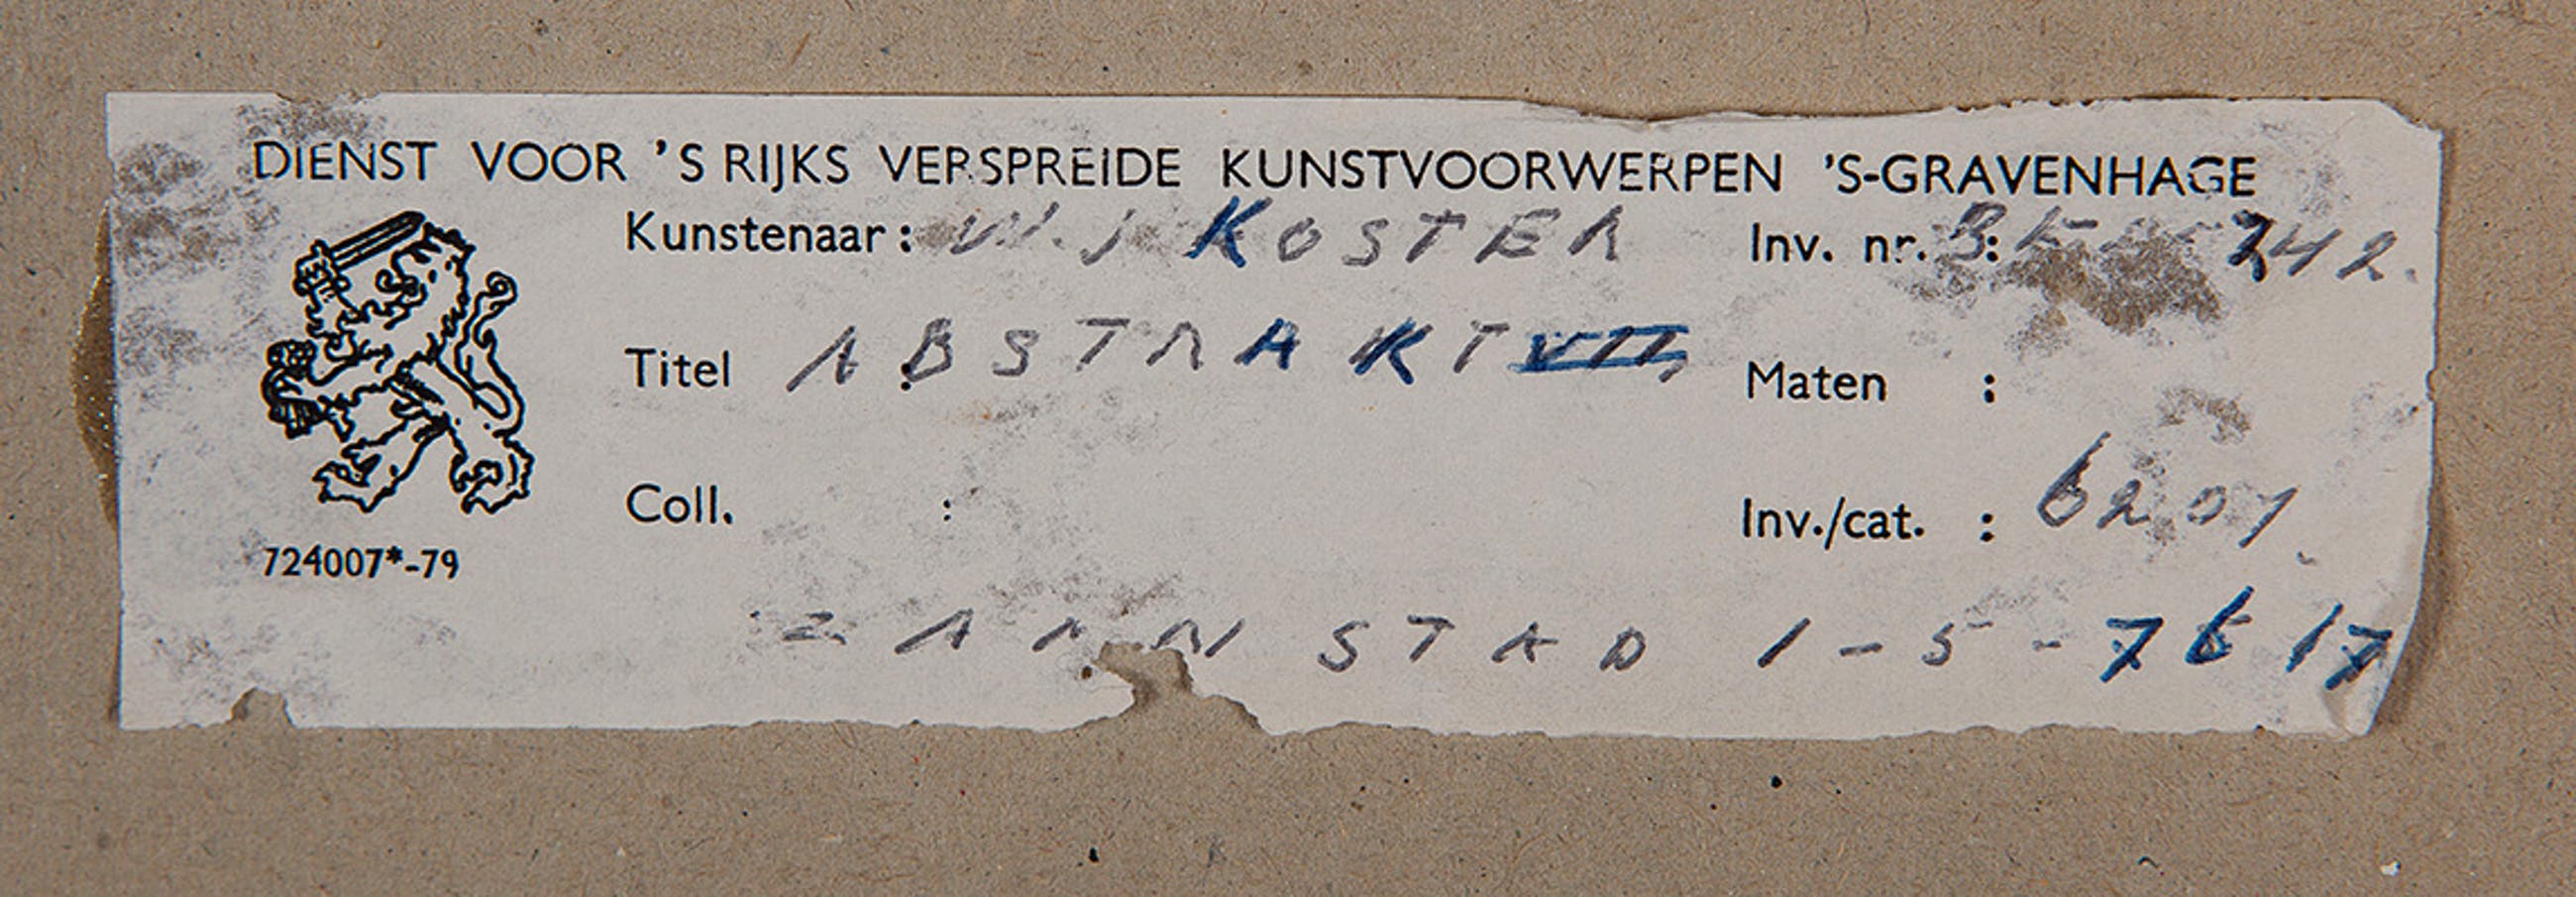 DIENST VOOR 'S RIJKS VERSPREIDE KUNSTVOORWERPEN 'S-GRAVENHAGE
Kunstenaar: W. J KOSTER Inv. nr. :
Titel : ABSTRAKT VII, Maten :
Coll. : Inv./cat. : 6207
724007*-79
ZAANSTAD 1-5-76 17